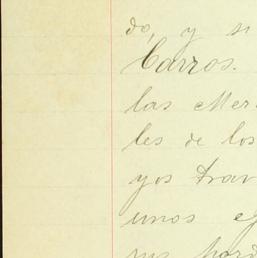 do, y si
Carros.
las Mer
les de los
yos trav
unos ej
sus bord